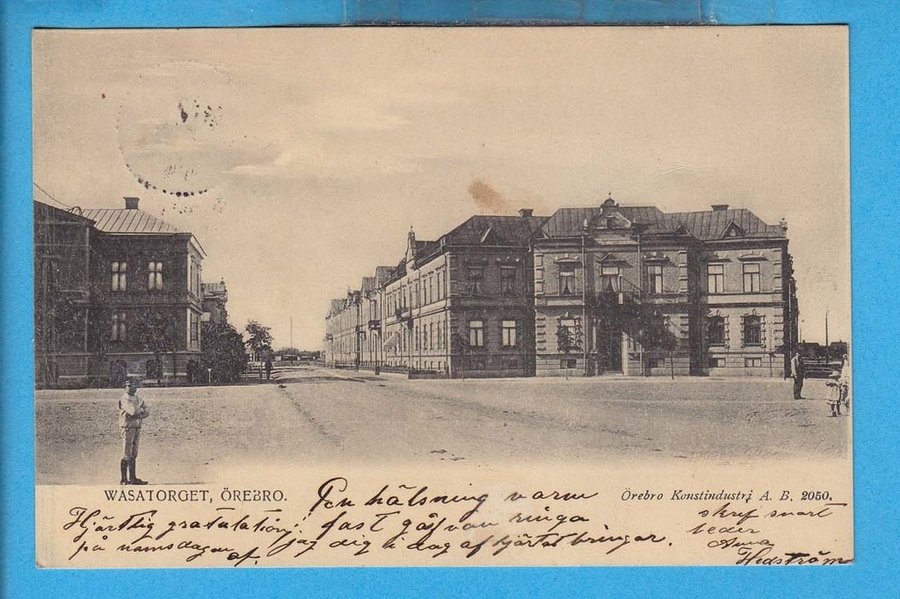 WASATORGET, ÖREBRO.
Örebro Konstindustri A. B. 2050.
Hjärtlig gratulation
på namsdagen af.
En hälsning varm
fast gåfvan ringa
jag dig i dag af hjärtat bringar.
skrif snart
beder
Anna
Hedström